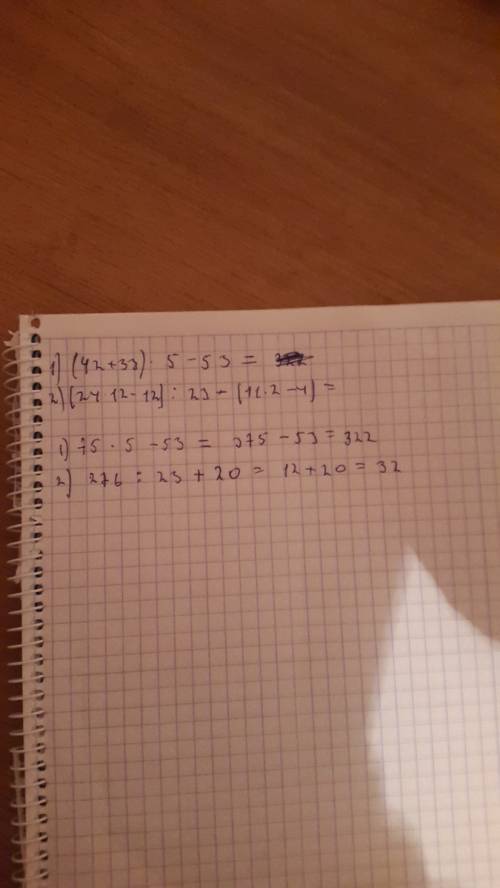 1) (42+33) · 5 - 53 =
2) (24 12 - 12) : 23 + (12 · 2 - 4) =
1) 75 · 5 - 53 = 375 - 53 = 322
2) 276 : 23 + 20 = 12 + 20 = 32